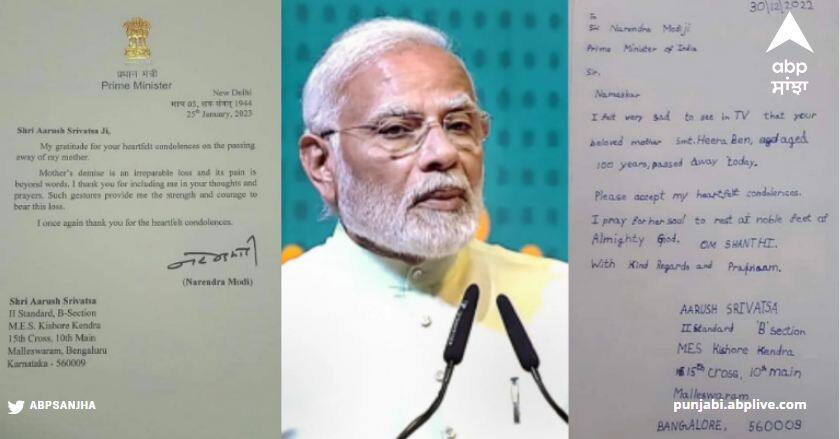 प्रधान मंत्री
Prime Minister
New Delhi
माघ 05, शक संवत् 1944
25th January, 2023
Shri Aarush Srivatsa Ji,
My gratitude for your heartfelt condolences on the passing
away of my mother.
Mother's demise is an irreparable loss and its pain is
beyond words. I thank you for including me in your thoughts and
prayers. Such gestures provide me the strength and courage to
bear this loss.
I once again thank you for the heartfelt condolences.
(Narendra Modi)
Shri Aarush Srivatsa
II Standard, B-Section
M.E.S. Kishore Kendra
15th Cross, 10th Main
Malleswaram, Bengaluru
Karnataka - 560009
ABPSANJHA
30/12/2022
To
Sri Narendra Modi ji
Prime Minister of India
Sir,
Namaskar
I felt very sad to see in TV that your
beloved mother Smt. Heera Ben, aged
100 years, passed away today.
Please accept my heartfelt condolences.
I pray for her soul to rest at noble feet of
Almighty God. OM SHANTHI.
With Kind Regards and Pranaam.
AARUSH SRIVATSA
II Standard 'B' section
MES Kishore Kendra
15th cross, 10th main
Malleswaram
BANGALORE, 560009
abp
ਸਾਂਝਾ
punjabi.abplive.com